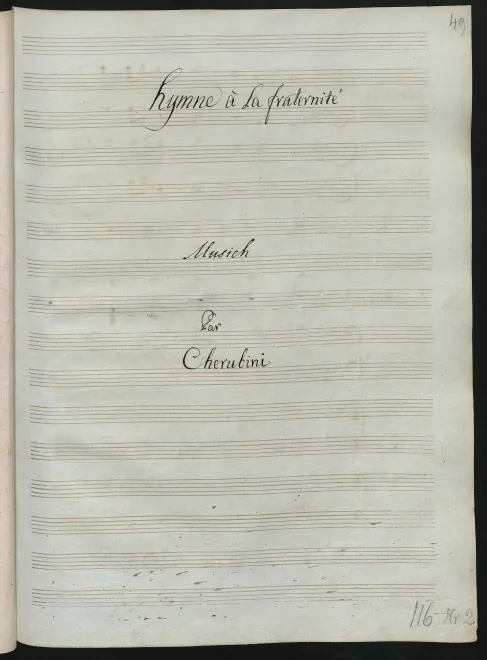 49
hymne à La fraternité
Musich
Par
Cherubini
116 Nr 2